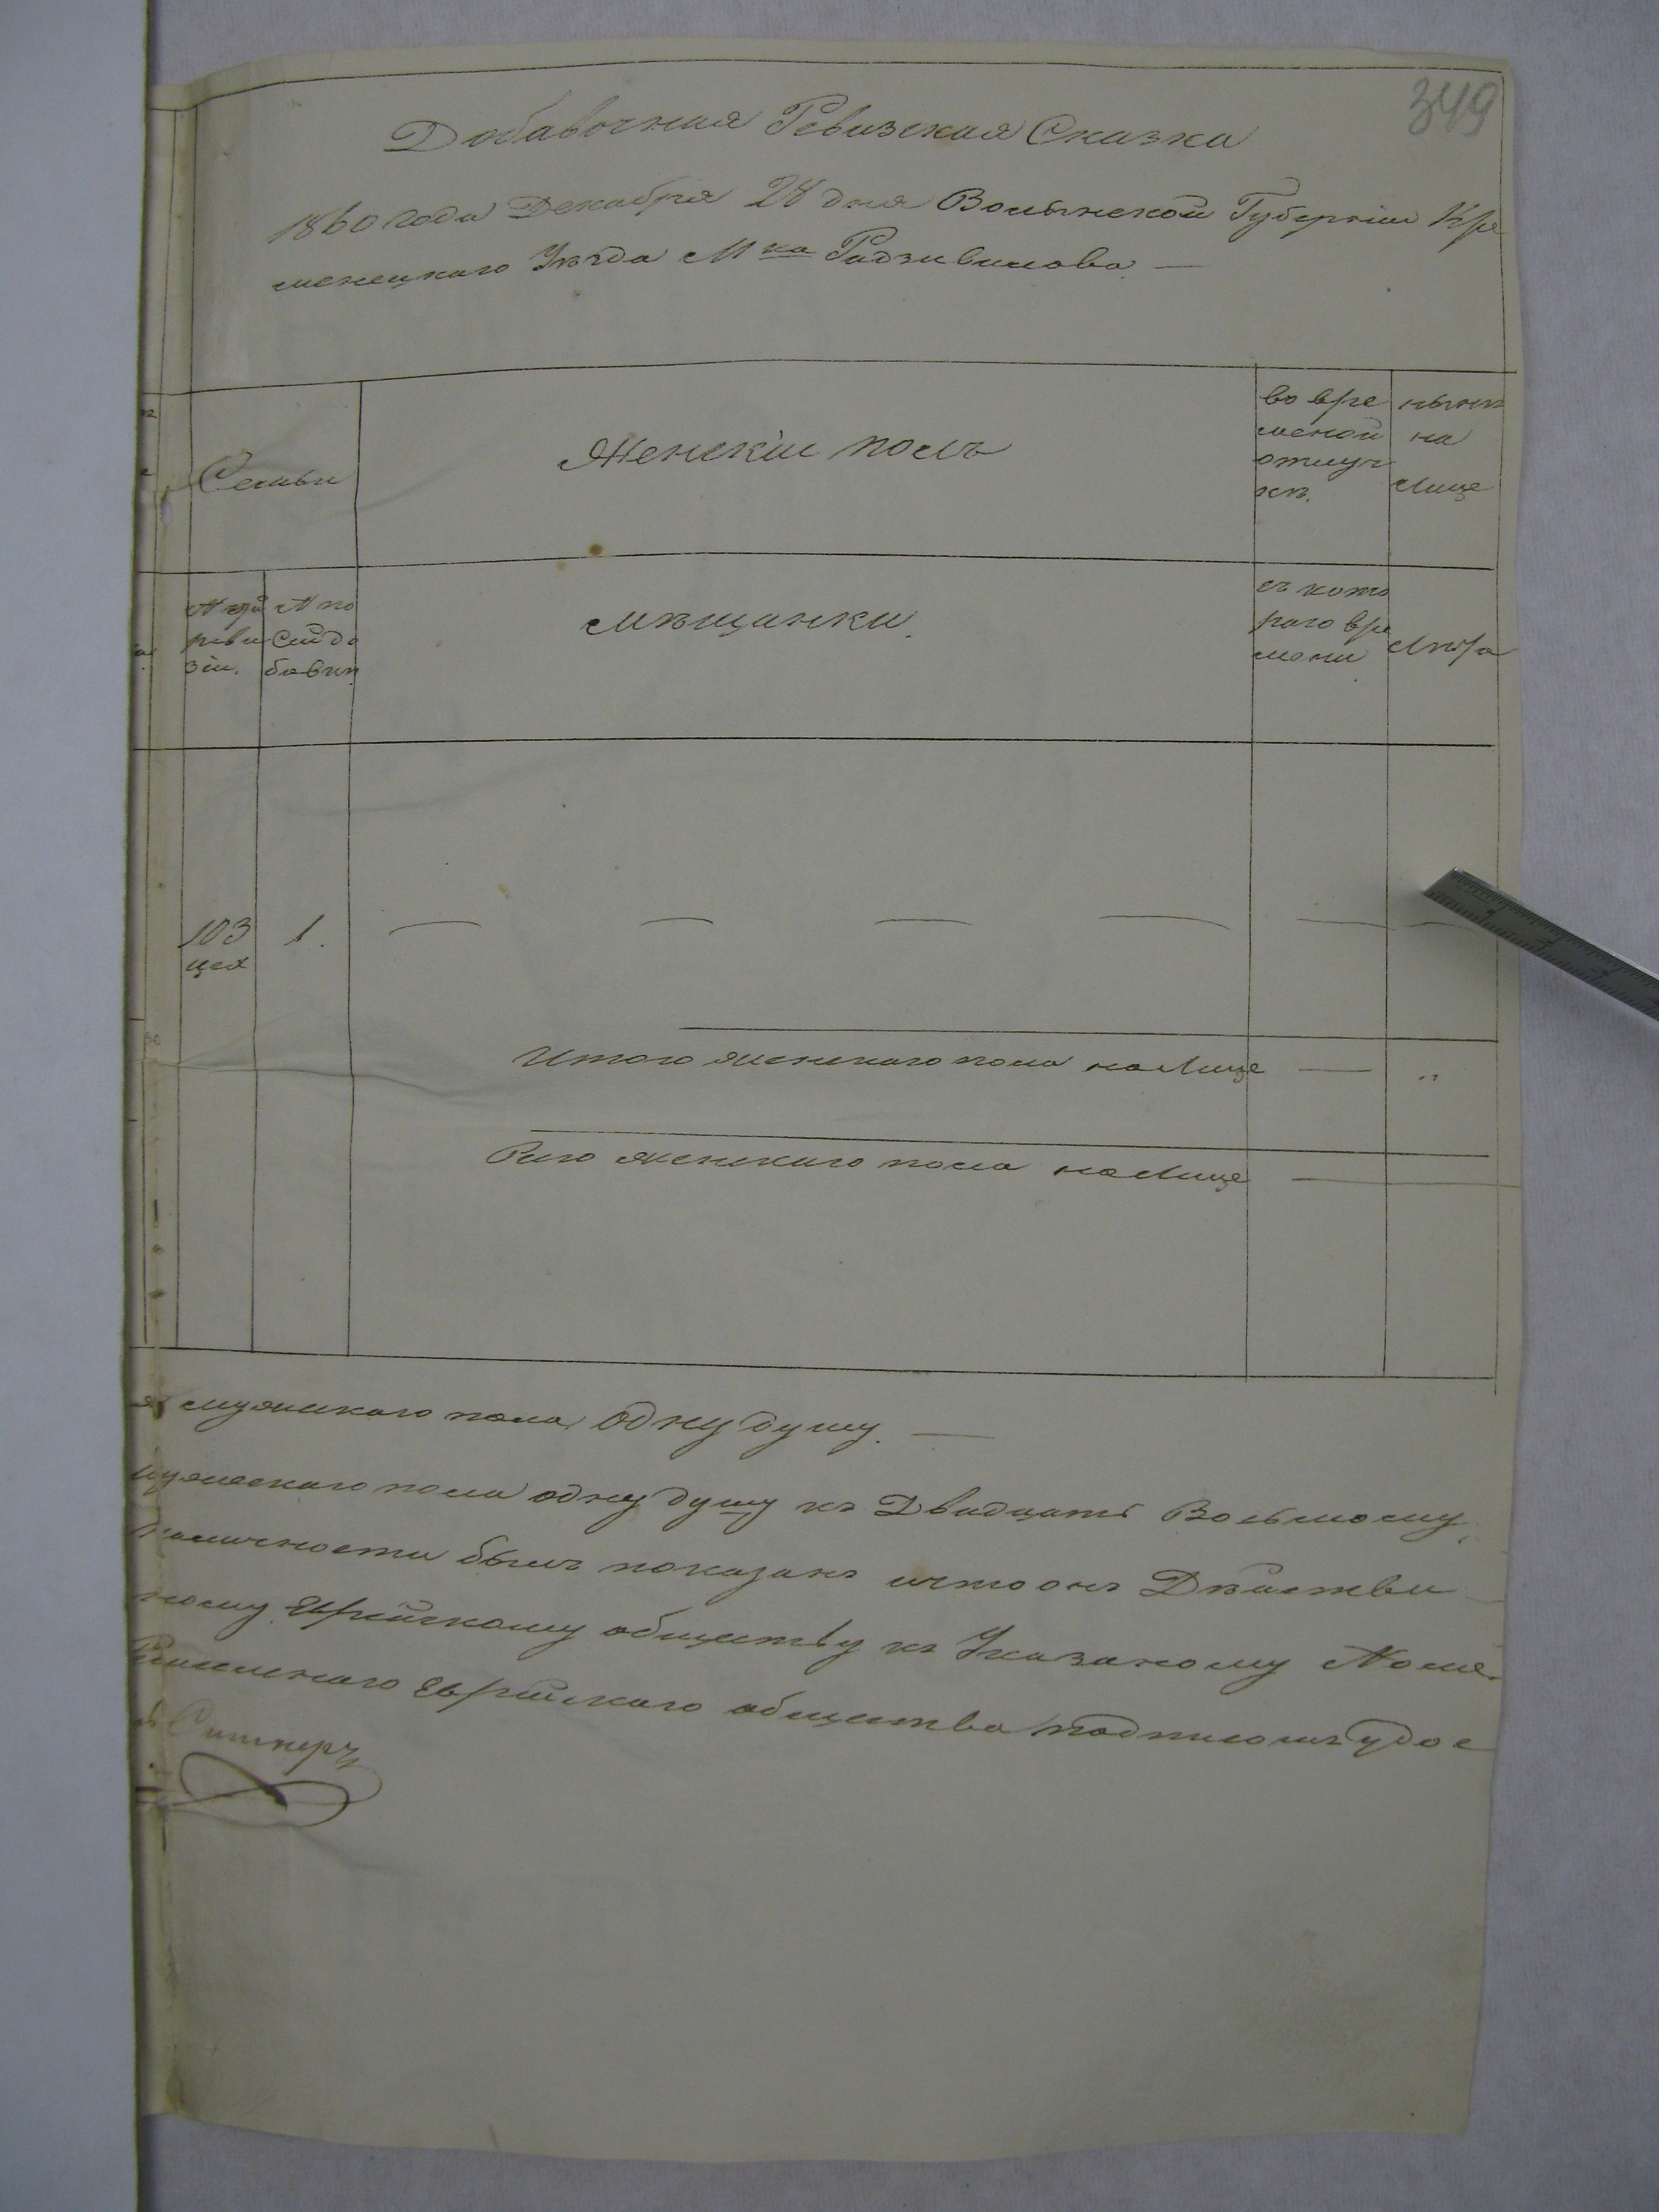 349
Добавочная Ревизская Сказка
1860 года Декабря 28 дня Волынской Губернии Кре
менецкаго Уезда М ка Радзивилова —
Семьи
Женскiи полъ
во вре
меной
отлуч
кѣ.
нынѣ
на
Лице
реви
зiи.
№ по
Сей до
бавич
мѣщанки.
съ кото
раго вре
мени
Лѣта
103
цех
1.
— — — — — —
Итого женскаго пола на Лице — "
Сего женскаго пола на Лице —
мужескаго пола одну душу. —
мужескаго пола одну душу къ Двадцать Восьмому
былъ показанъ и что онъ Дѣйстви
ному Еврейскому обществу къ Указаному
Еврейскаго общества подписомъ удос